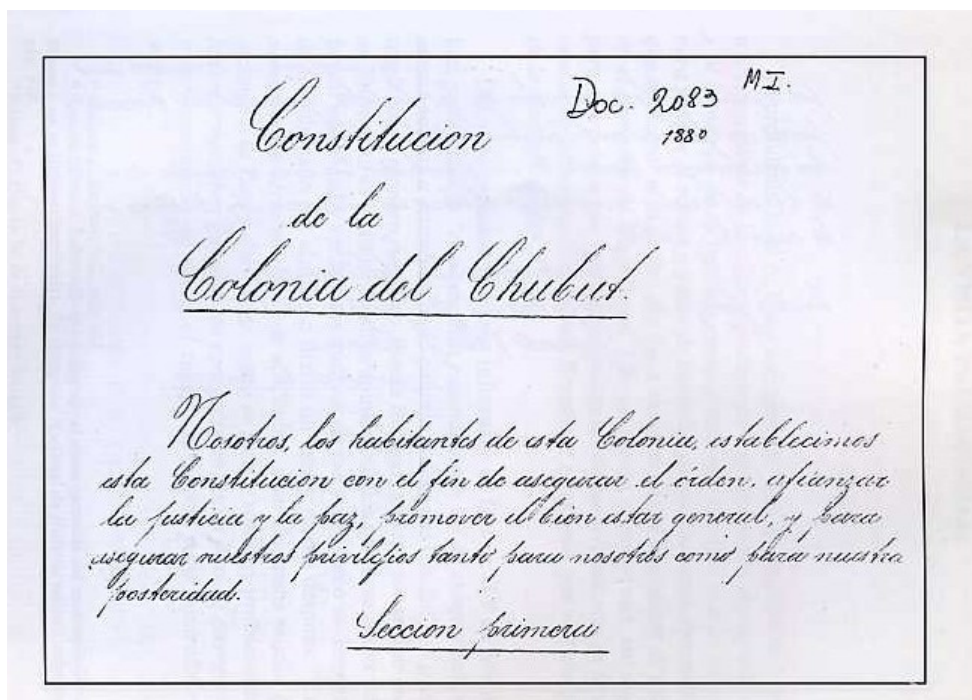 Doc. 2083 M.I.
1880
Constitucion
de la
Colonia del Chubut.
Nosotros, los habitantes de esta Colonia, establecimos
esta Constitucion con el fin de asegurar el órden, afianzar
la justicia y la paz, promover el bien estar general, y para
asegurar nuestros privilejios tanto para nosotros como para nuestra
posteridad.
Seccion primera